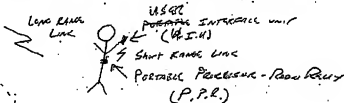 LONG RANGE LINK
USER
PORTABLE INTERFACE UNIT
(U.I.U)
SHORT RANGE LINK
PORTABLE PROCESSOR - RADIO RELAY
(P.P.R.)